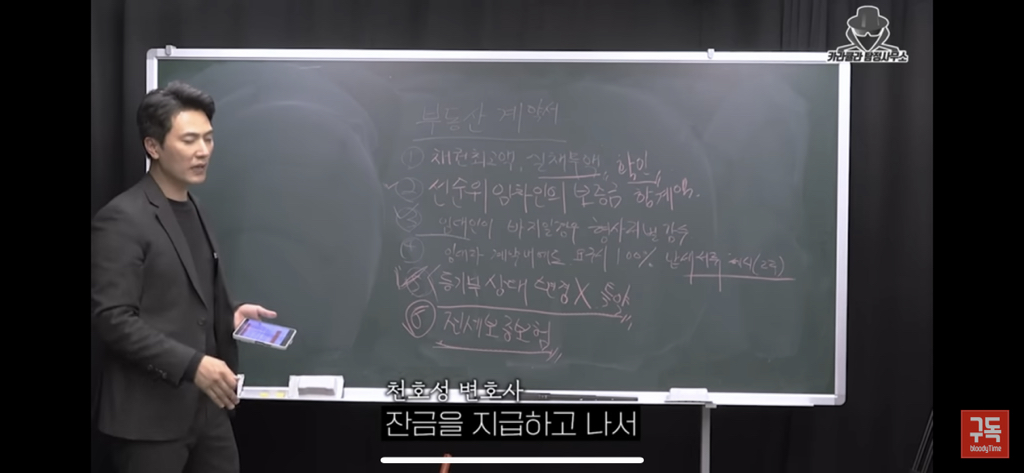 카라큘라 탐정사무소
부동산 계약서
① 채권최고액, 실채무액, 확인
② 선순위 임차인의 보증금 합계액.
③ 임대인이 바지일경우 형사처벌 감수
④ 100% 납세 서류
⑤ 등기부 상태 변경 X 특약
⑥ 전세보증보험
천호성 변호사
잔금을 지급하고 나서
구독
bloodyTime